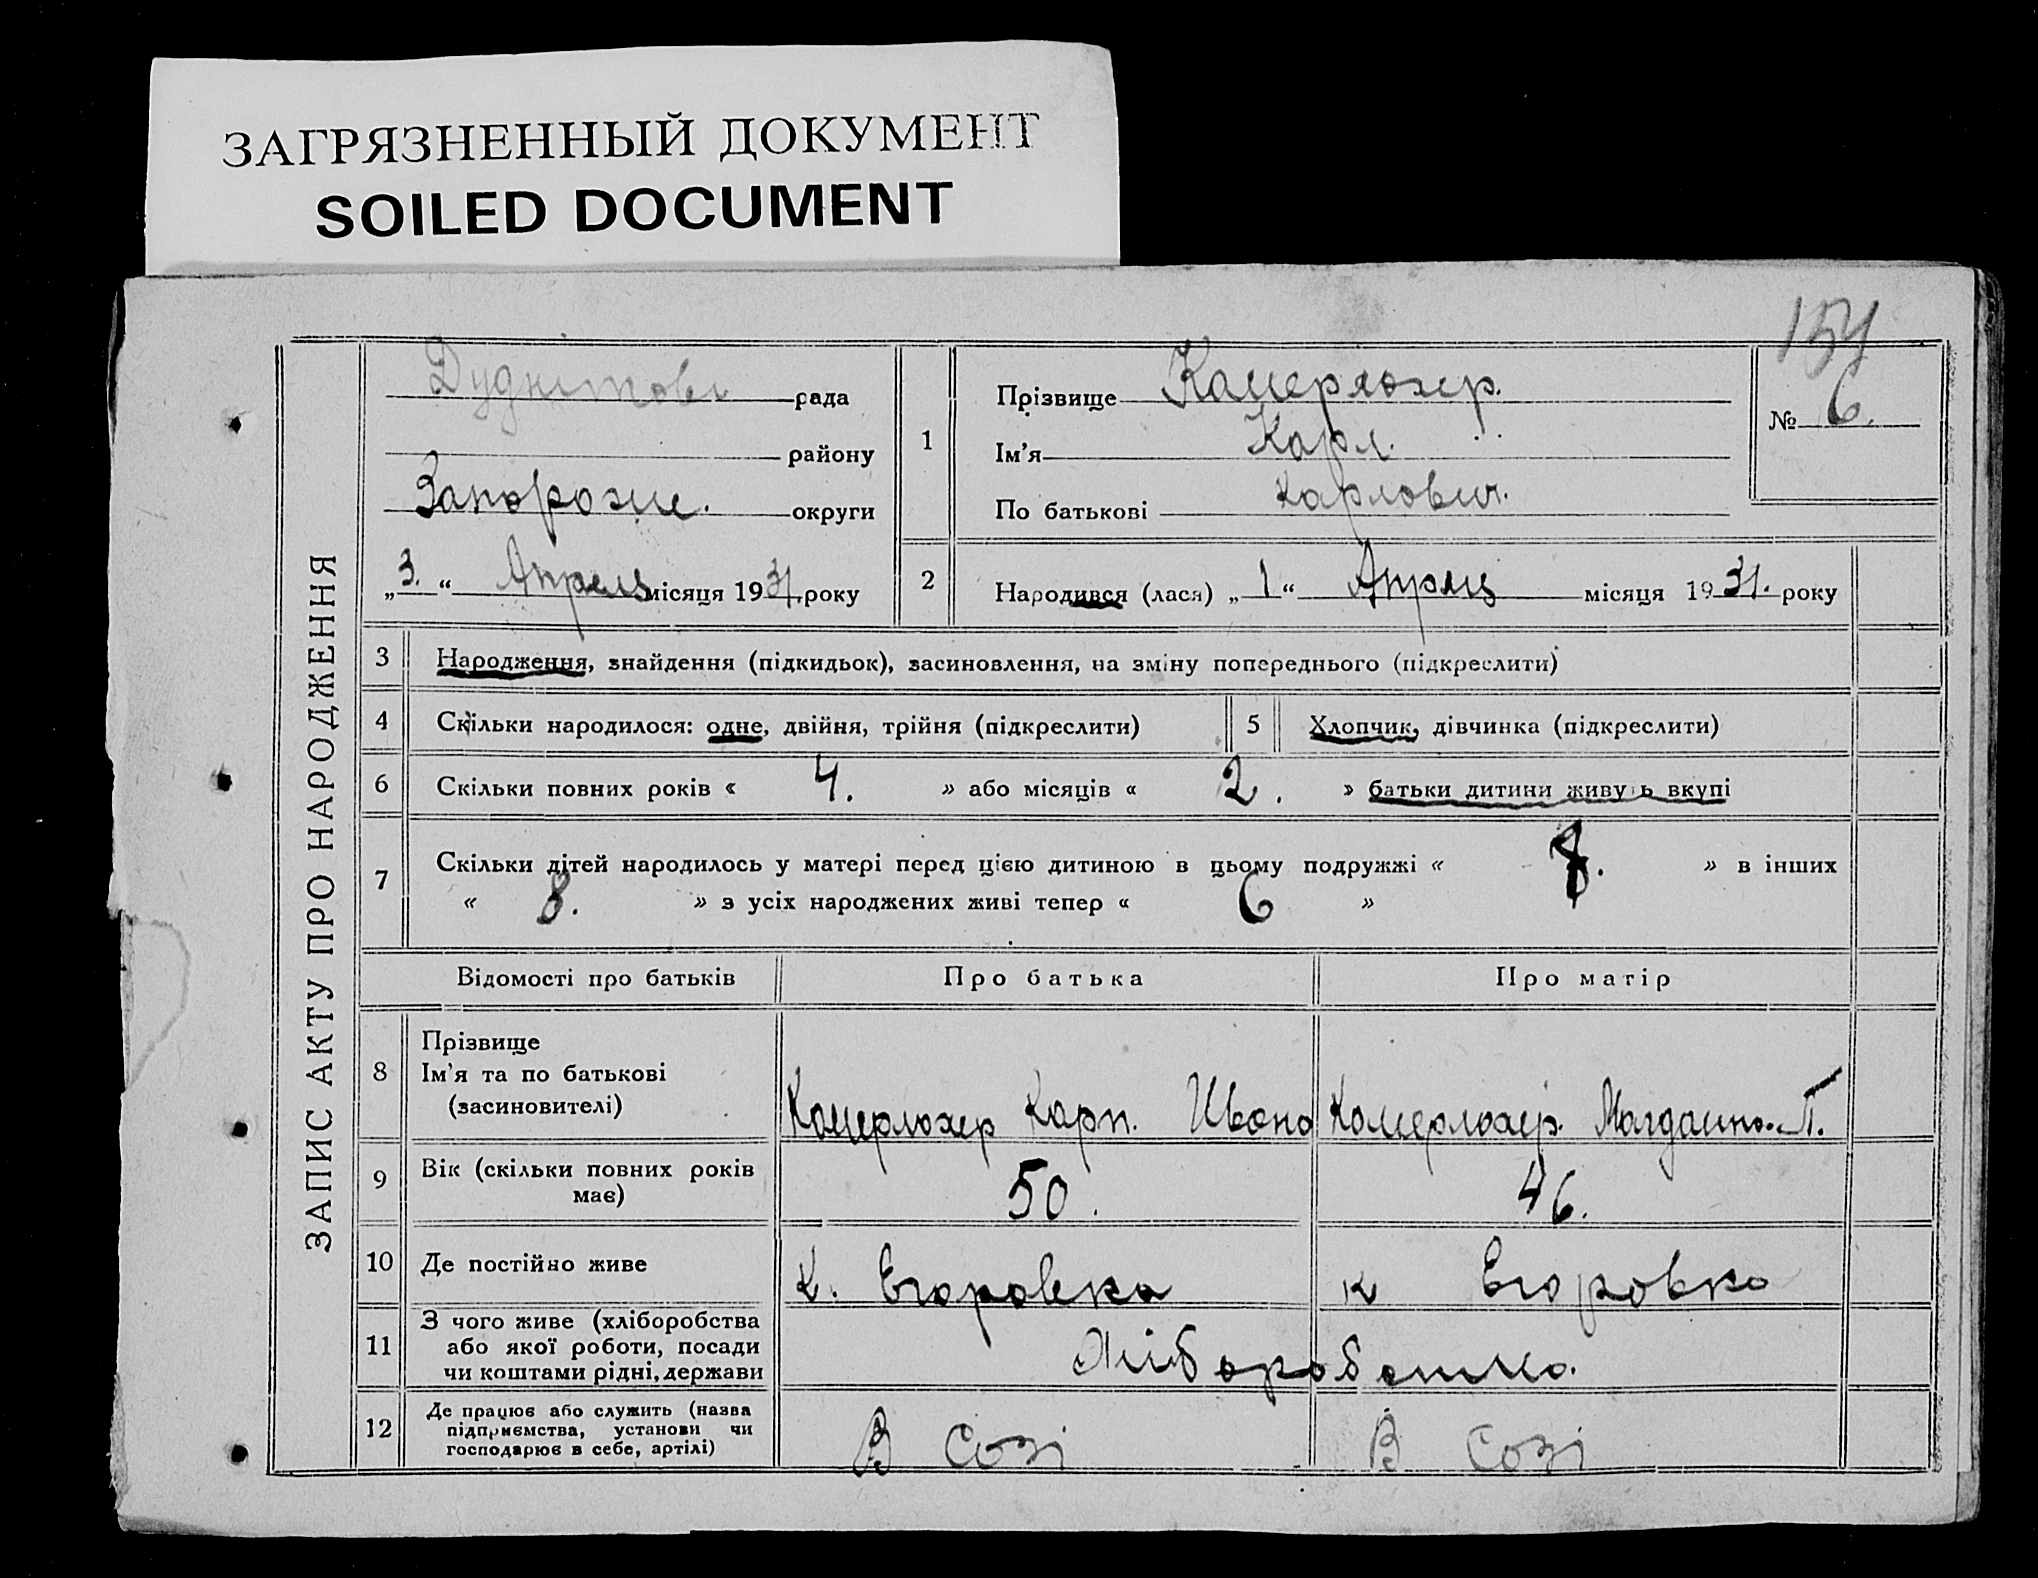 ЗАГРЯЗНЕННЫЙ ДОКУМЕНТ
SOILED DOCUMENT
154
ЗАПИС АКТУ ПРО НАРОДЖЕННЯ
рада
району
Запорожж. округи
„3.“ Апрель місяця 1931 року
1
Прізвище Камерлохер.
Ім'я Карл.
По батькові Карлович.
№ 6.
2 Народився (лася) „1“ Апрель місяця 1931. року
3 Народження, знайдення (підкидьок), засиновлення, на зміну попереднього (підкреслити)
4 Скільки народилося: одне, двійня, трійня (підкреслити)
5 Хлопчик, дівчинка (підкреслити)
6 Скільки повних років « 4. » або місяців « 2. » батьки дитини живуть вкупі
7 Скільки дітей народилось у матері перед цією дитиною в цьому подружжі « 8. » в інших
« 8. » з усіх народжених живі тепер « 6 »
Відомості про батьків Про батька Про матір
8 Прізвище
Ім'я та по батькові
(засиновителі)
Камерлохер Карл. Ивано Камерлохер. Магдалина. П.
9 Вік (скільки повних років
має)
50. 46.
10 Де постійно живе к. Егоровка к Егоровка
11 З чого живе (хліборобства
або якої роботи, посади
чи коштами рідні, держави
12 Де працює або служить (назва
підприємства, установи чи
господарює в себе, артілі)
В Созі В Созі